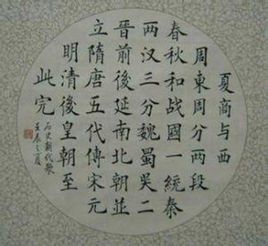 夏商与西
周東周分两段
春秋和战國一統秦
两汉三分魏蜀吴二
晋前後延南北朝並
立隋唐五代傳宋元
明清後皇朝至
此完
史朝代歌